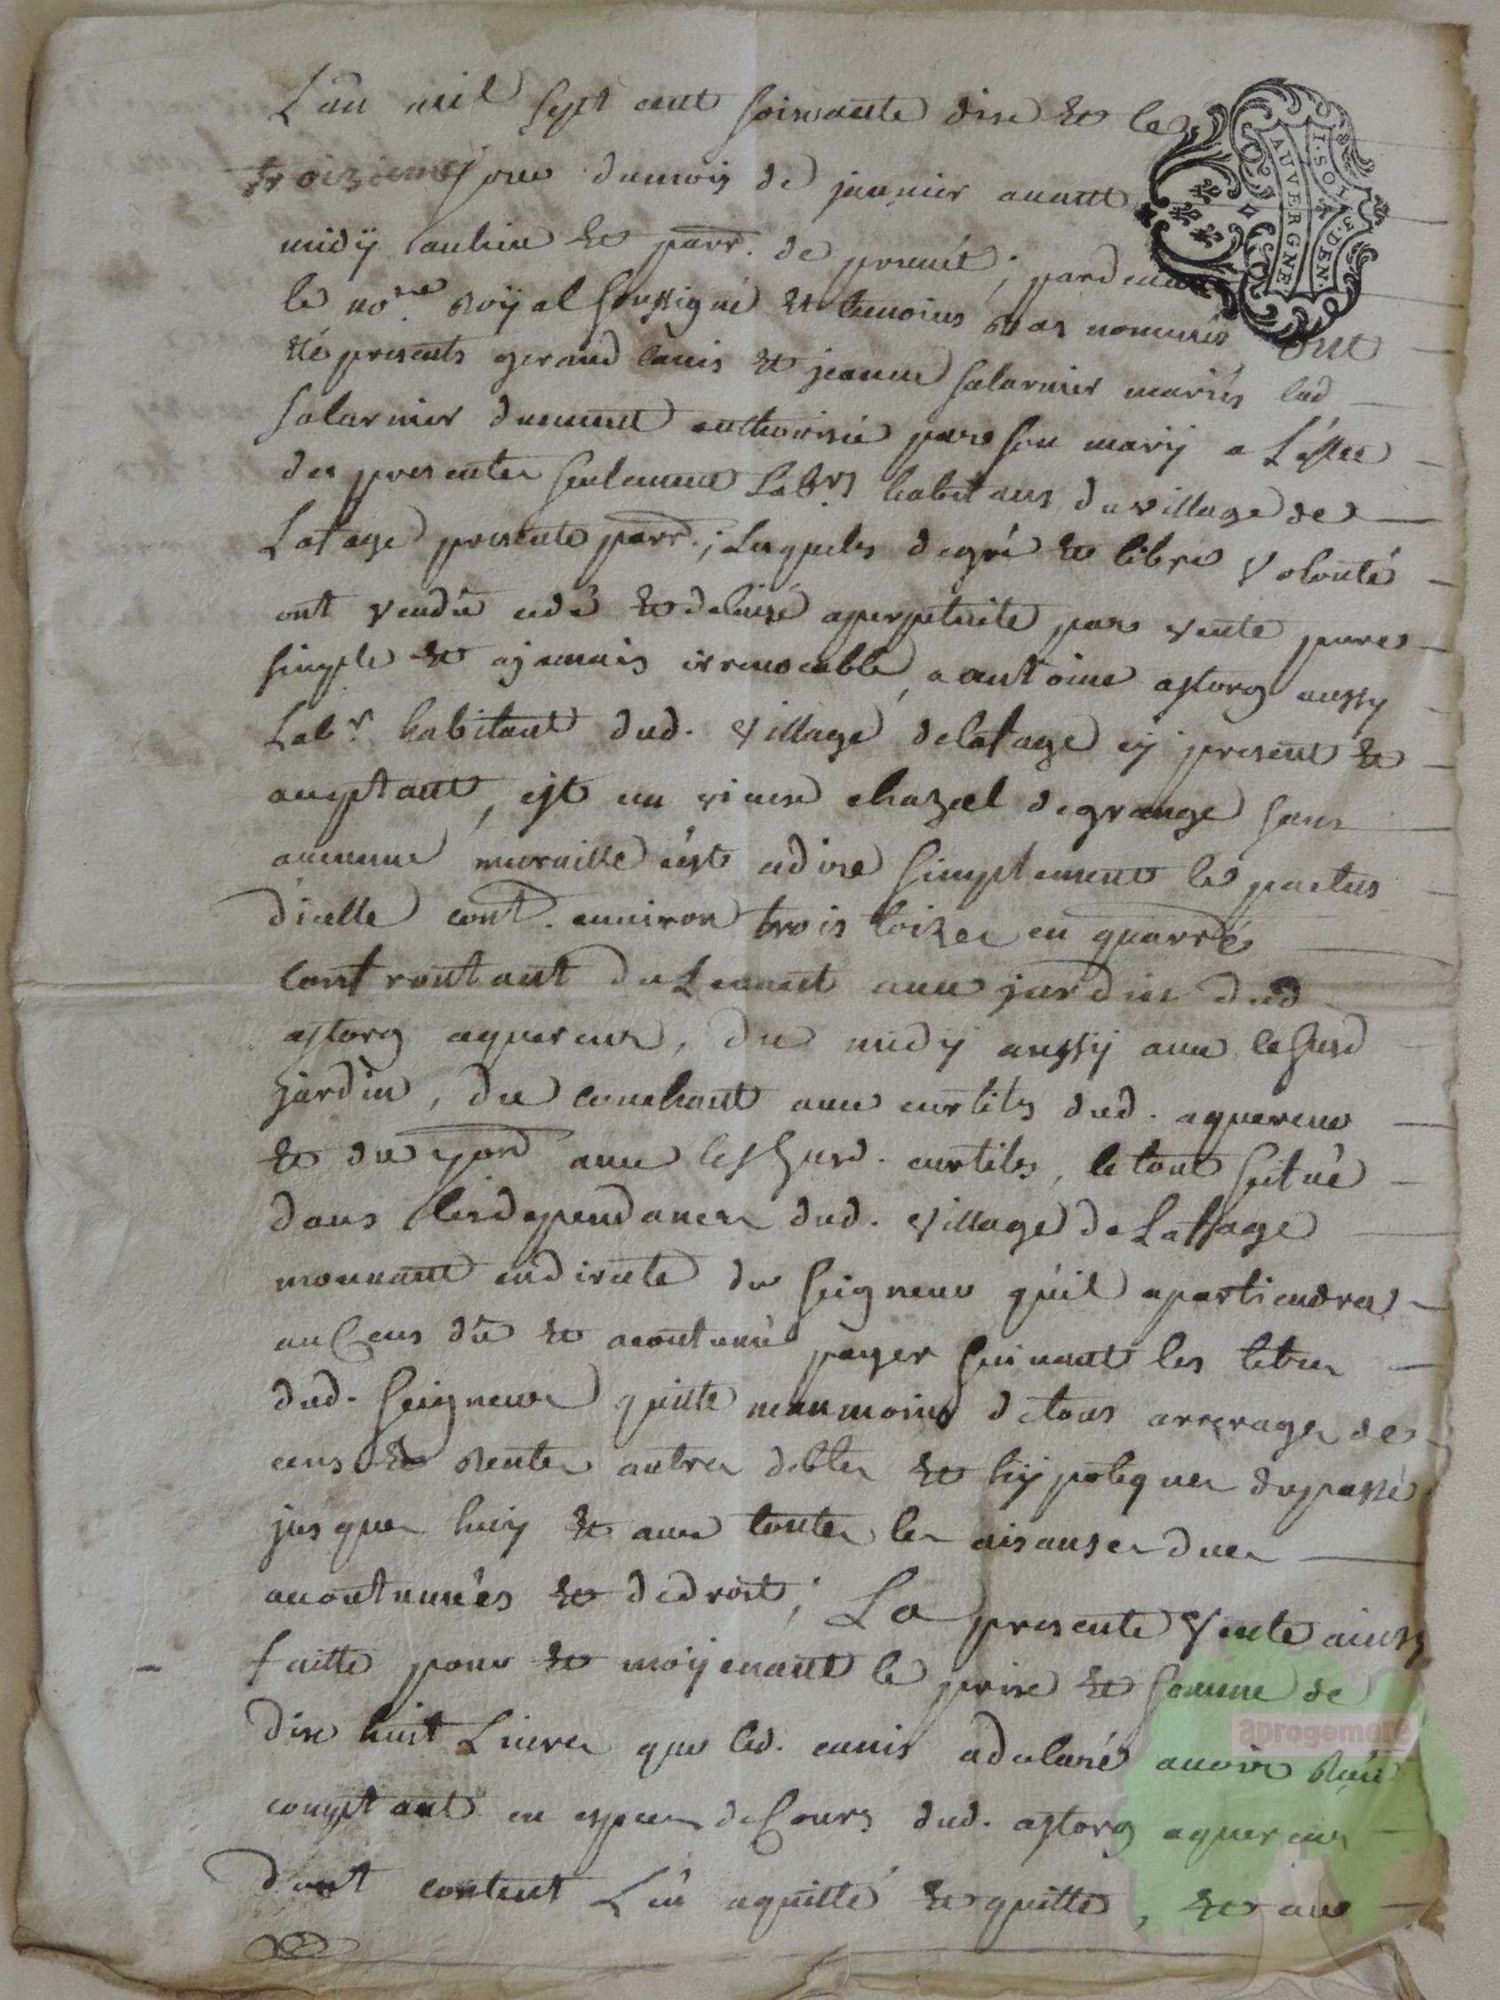 L'an mil sept cent soixante dixe et le
troizieme jour du mois de janvier avant
midÿ au lieu et parr. de prunét; pardevant
le no.re Royal soussigné et temoins bas nommés ont
été présents geraud canis et jeanne salarnier mariés lad
salarnier dument authorisée par son marÿ a L'éffet
des presentes seulement Lab.rs habitans du village de
Lafage presente parr.; Lesquels de gré et libre volonté
ont vendu cedé et delaissé a perpetuité par vente pure
simple et ajamais irrevocable, a antoine astorg aussy
Lab.r habitant dud. village delafage cÿ present et
aceptant, est un vieux chazal de grange sans
aucune muraille c'est adire simplement le pactus
d'icelle cont. environ trois toizes en quarré
confrontant du Levant avec jardin dud
astorg aquereur, du midÿ aussÿ avec le susd
jardin, du couchant avec curtils dud. aquereur
et du nord avec les susd. curtils, le tout scitué
dans les dependances dud. village de Laffage
mouvant en directe du seigneur qu'il apartiendra
au Cens dû et acoutumé payer suivant les titres
dud. seigneur quitte neanmoins de tous arrerages de
cens et Rentes autres debtes et hÿpoteques du passé
jusques huÿ et avec toutes les aisanses dues
acoutumées et de droit; La presente vente ainsy
faitte pour et moÿenant le prix et somme de
dix huit Livres que led. canis a declaré avoir Reçu
comptant en espeses de Cours dud. astorg aquereur
dont content L'en a quitté et quitte, et avec
I. SOL 3. DEN.
AUVERGNE
aprogemere